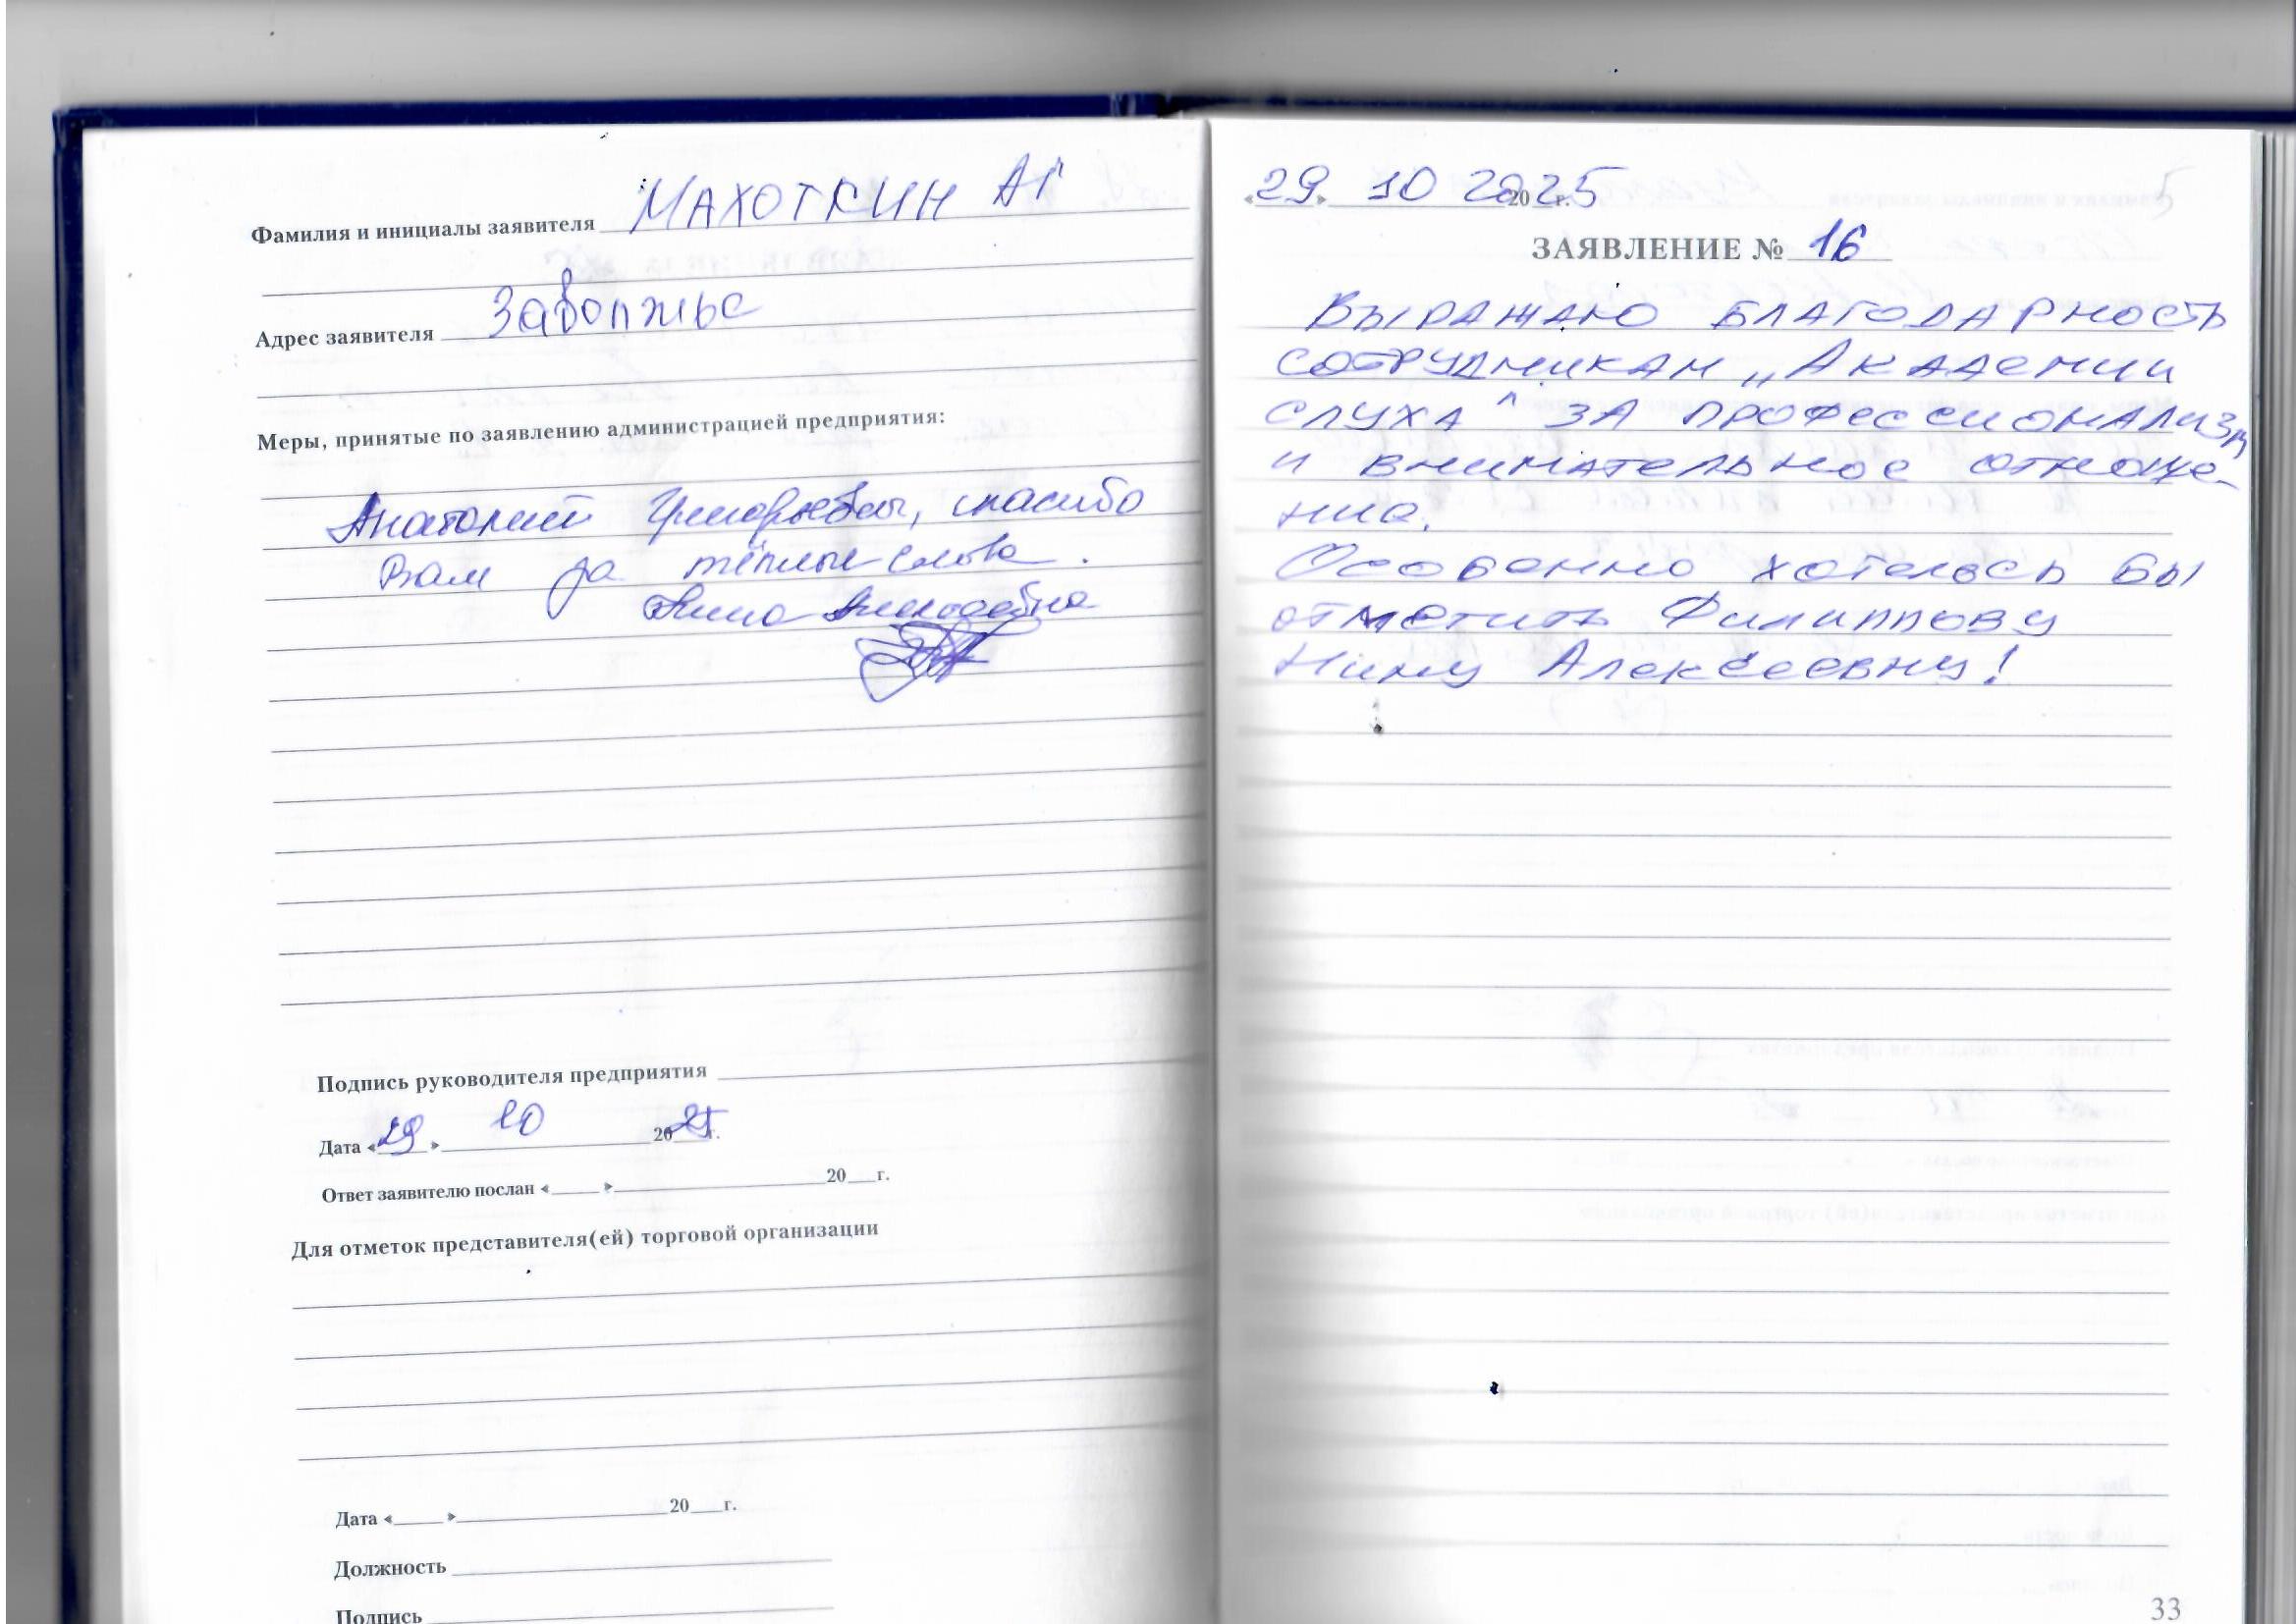 Фамилия и инициалы заявителя МАХОТКИН АГ
Адрес заявителя Заволжье
Меры, принятые по заявлению администрацией предприятия:
Анатолий Григорьевич, спасибо
Вам за тёплые слова.
Нина Алексеевна
Подпись руководителя предприятия
Дата «29» 10 2025г.
Ответ заявителю послан «____»____________20___г.
Для отметок представителя(ей) торговой организации
Дата «____»____________20___г.
Должность
Подпись
«29» 10 2025 г.
ЗАЯВЛЕНИЕ № 16
Выражаю благодарность
сотрудникам „Академии
слуха" за профессионализм
и внимательное отноше-
ние.
Особенно хотелось бы
отметить Филиппову
Нину Алексеевну!
33